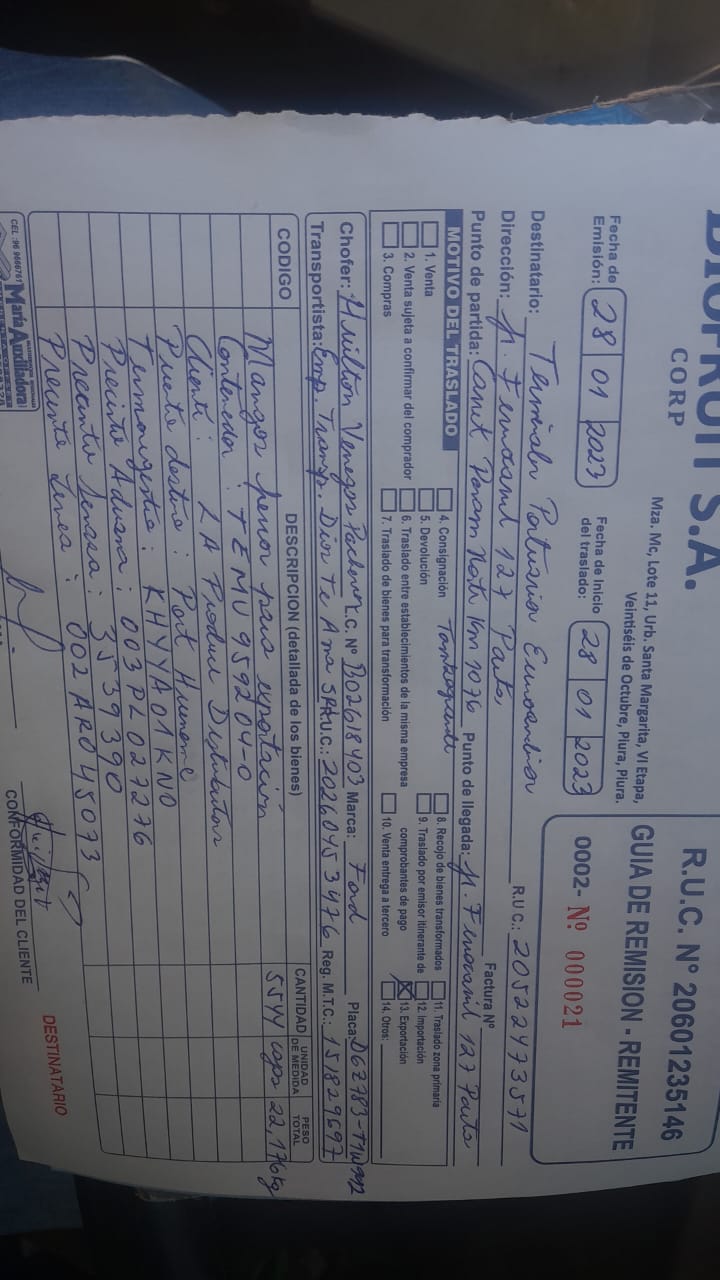 S.A.
CORP
Mza. Mc, Lote 11, Urb. Santa Margarita, VI Etapa,
Veintiséis de Octubre, Piura, Piura.
R.U.C. N° 20601235146
GUIA DE REMISION - REMITENTE
0002- N° 000021
Fecha de Emisión: 28 01 2023
Fecha de Inicio del traslado: 28 01 2023
Destinatario: Terminales Portuarios Euroandinos R.U.C.: 20522473571
Dirección: Jr. Ferrocarril 127 Paita, Factura N°
Punto de partida: Carret Panam Norte Km 1076 Punto de llegada: Jr. Ferrocarril 127 Paita
Tambogrande
MOTIVO DEL TRASLADO
1. Venta
2. Venta sujeta a confirmar del comprador
3. Compras
4. Consignación
5. Devolución
6. Traslado entre establecimientos de la misma empresa
7. Traslado de bienes para transformación
8. Recojo de bienes transformados
9. Traslado por emisor itinerante de comprobantes de pago
10. Venta entrega a tercero
11. Traslado zona primaria
12. Importación
13. Exportación
14. Otros:
Chofer: Venegas Pacherre L.C. N° B02618403 Marca: Ford Placa:
Transportista: Emp. Transp. Dios Te Ama R.U.C.: 20260453476 Reg. M.T.C.: 151829697
CODIGO DESCRIPCION (detallada de los bienes) CANTIDAD UNIDAD DE MEDIDA PESO TOTAL
Mangos fresco para exportación 5544 cajas 22,176 kg
Contenedor : TEMU 959204-0
Cliente : LA Produce Distributors
Puerto destino : Port Hueneme
Termoregistro : KHYYA01KN0
Precinto Aduana : 003PL027276
Precinto Senasa : 3539390
Precinto Linea : 002AR045073
María Auxiliadora
CONFORMIDAD DEL CLIENTE
DESTINATARIO